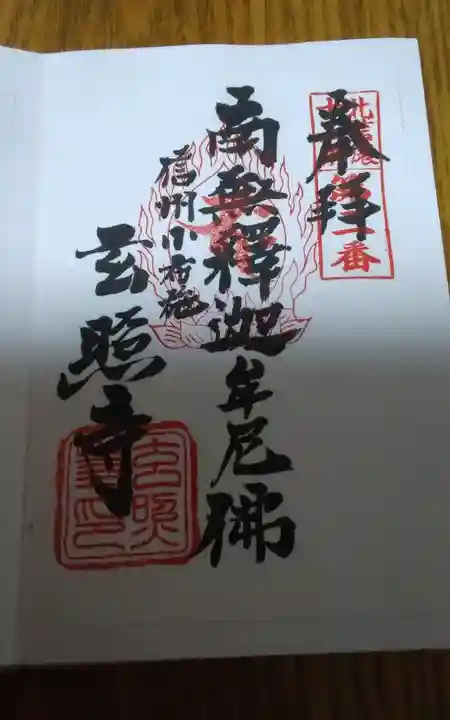 奉拝
第一番
南無釋迦牟尼佛
信州小布施
玄照寺